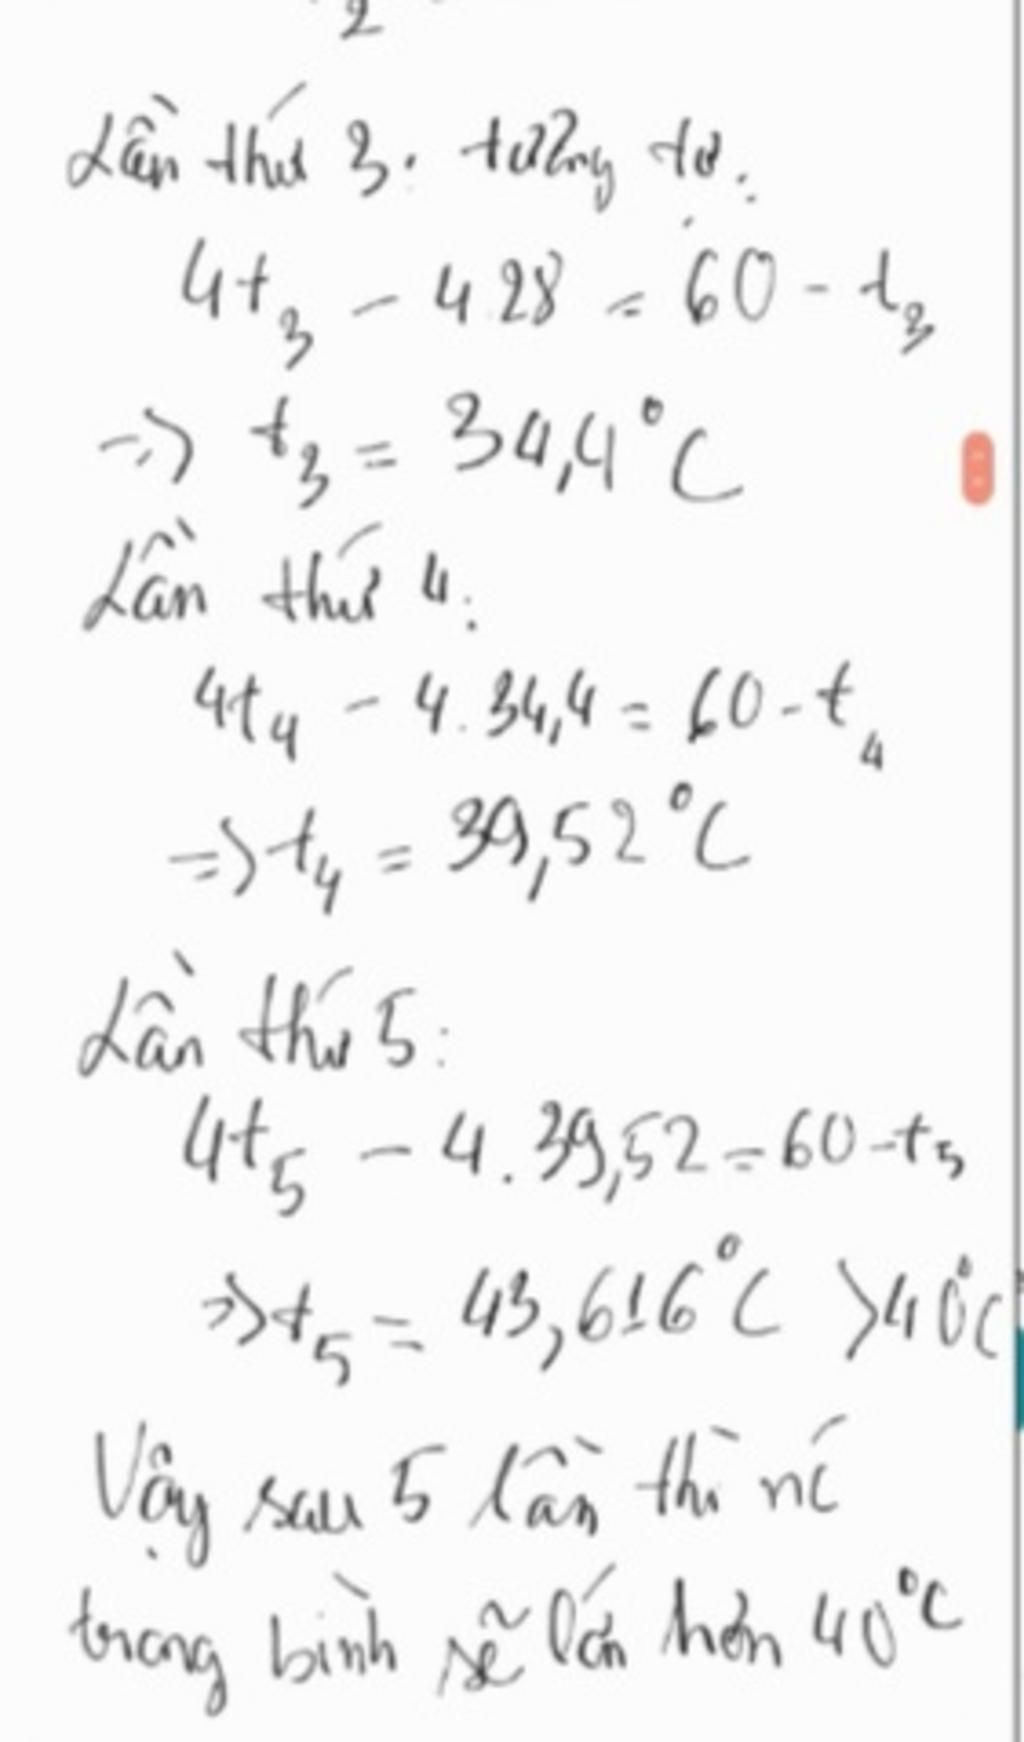 2
Lần thứ 3. tương tự:
4t₃ - 4.28 = 60 - t₃
=> t₃ = 34,4°C
Lần thứ 4:
4t₄ - 4.34,4 = 60 - t₄
=> t₄ = 39,52°C
Lần thứ 5:
4t₅ - 4.39,52 = 60 - t₅
=> t₅ = 43,616°C > 40°C
Vậy sau 5 lần thì nć
trong bình sẽ lớn hơn 40°C